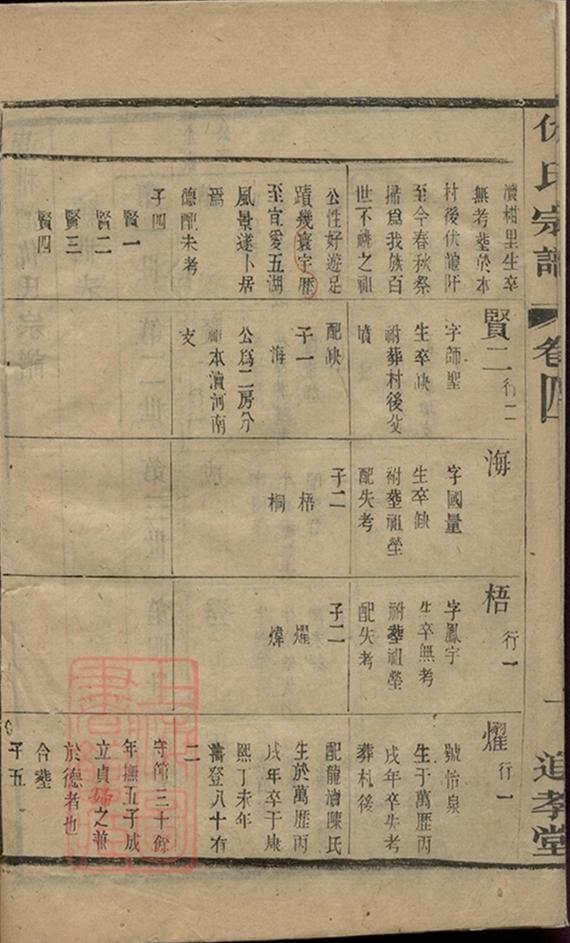 氏宗譜
卷四
一
追孝堂
瀆村里生卒
無考塟於本
村後伏龍阡
至今春秋祭
掃為我族百
世不祧之祖
公性好遊足
蹟幾寰宇歷
至宜愛五湖
風景遂卜居
焉
德配未考
子四
賢一
賢二
賢三
賢四
賢二 行二
字師聖
生卒缺
祔葬村後父
墳
配缺
子一
海
公爲二房分
本瀆河南
支
海
字國量
生卒缺
祔塟祖塋
配失考
子二
梧
桐
梧 行一
字鳳宇
生卒無考
祔塟祖塋
配失考
子二
燿
煒
燿 行一
號怡泉
生于萬曆丙
戌年卒失考
葬村後
配龍瀆陳氏
生於萬歷丙
戌年卒于康
熙丁未年
壽登八十有
二
守節三十餘
年撫五子成
立貞婦之兼
於德者也
合塟
子五